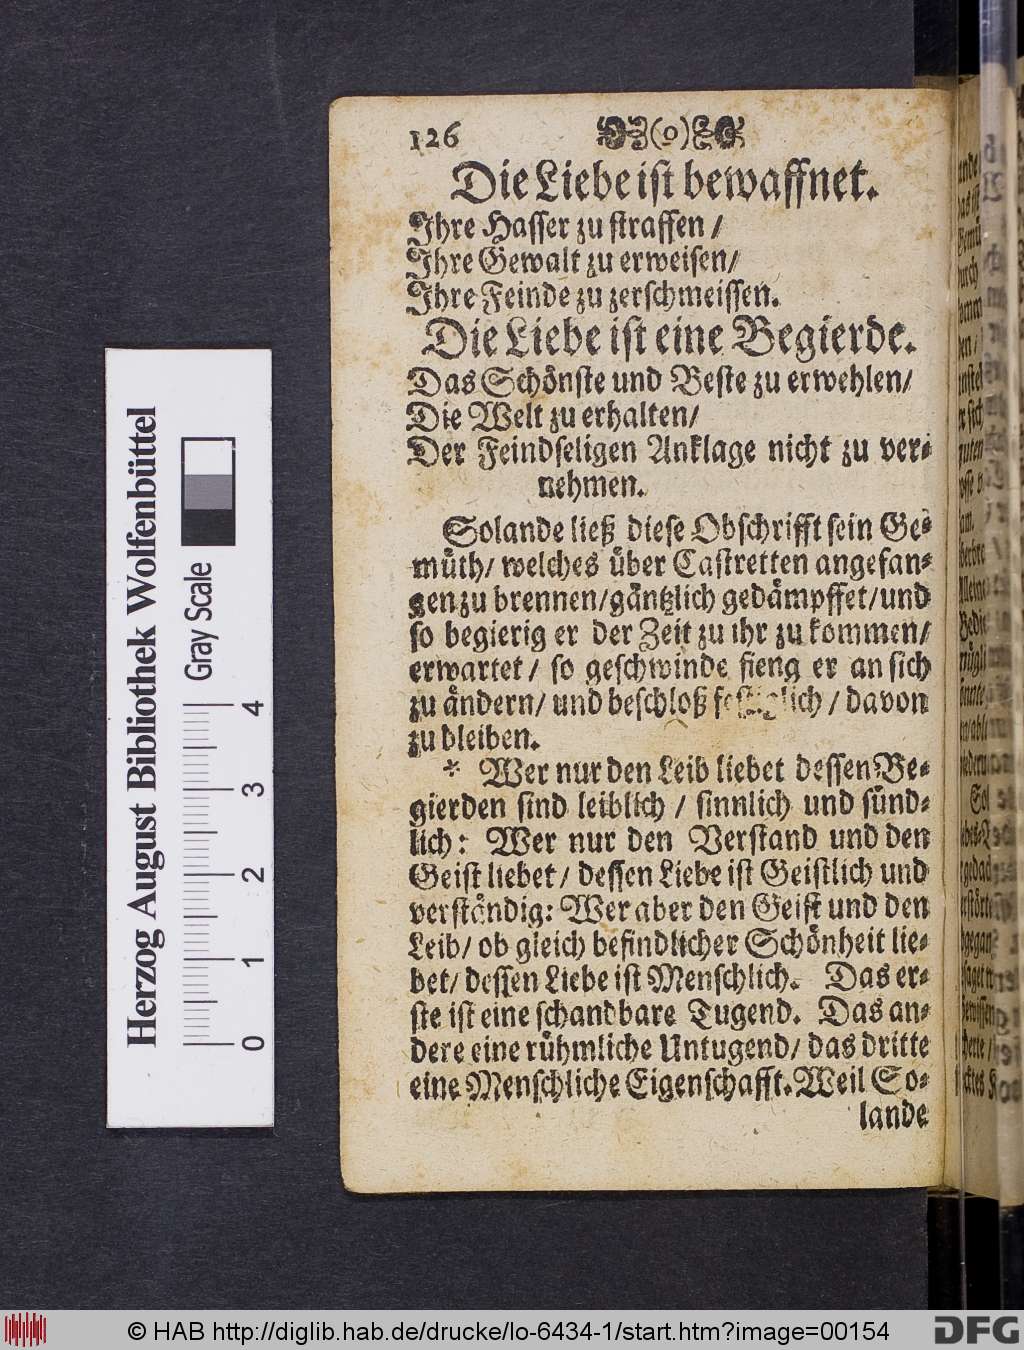 126 (o)
Die Liebe ist bewaffnet.
Ihre Hasser zu straffen /
Ihre Gewalt zu erweisen/
Ihre Feinde zu zerschmeissen.
Die Liebe ist eine Begierde.
Das Schönste und Beste zu erwehlen/
Die Welt zu erhalten/
Der Feindseligen Anklage nicht zu ver-
nehmen.
Solande ließ diese Obschrifft sein Ge-
müth/ welches über Castretten angefan-
gen zu brennen/gäntzlich gedämpffet/und
so begierig er der Zeit zu ihr zu kommen/
erwartet / so geschwinde fieng er an sich
zu ändern/ und beschloß / davon
zu bleiben.
* Wer nur den Leib liebet dessen Be-
gierden sind leiblich / sinnlich und sünd-
lich: Wer nur den Verstand und den
Geist liebet / dessen Liebe ist Geistlich und
verständig: Wer aber den Geist und den
Leib/ ob gleich befindlicher Schönheit lie-
bet/ dessen Liebe ist Menschlich. Das er-
ste ist eine schandbare Tugend. Das an-
dere eine rühmliche Untugend/ das dritte
eine Menschliche Eigenschafft. Weil So-
lande
Herzog August Bibliothek Wolfenbüttel
Gray Scale
0 1 2 3 4
© HAB http://diglib.hab.de/drucke/lo-6434-1/start.htm?image=00154
DFG